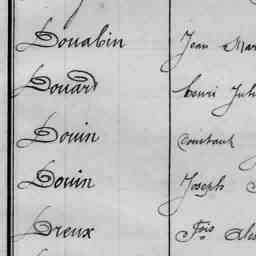 Douabin Jean Mar
Douard henri Jul
Douin Constant
Douin Joseph
Dreux Fçois Ale